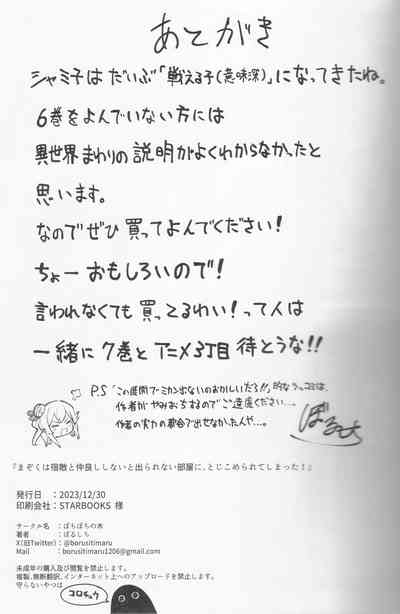 あとがき
シャミ子は だいぶ「戦える子(意味深)」になってきたね。
6巻をよんでいない方には
異世界まわりの説明がよくわからなかったと
思います。
なのでぜひ買ってよんでください!
ちょーおもしろいので!
言われなくても買ってるわい!って人は
一緒に7巻とアニメ3丁目待とうな!!
P.S「この展開でミカン出ないのおかしいだろ!!」的なツッコミは、
作者がやみおちするのでご遠慮ください…。
作者の実力の都合で出せなかったんや…。
ぼるしち
『まぞくは宿敵と仲良ししないと出られない部屋に、とじこめられてしまった!』
発行日 :2023/12/30
印刷会社:STARBOOKS 様
サークル名 :ぼちぼちの木
著者 :ぼるしち
X(旧Twitter):@borusitimaru
Mail :borusitimaru1206@gmail.com
未成年の購入及び閲覧を禁止します。
複製、無断翻訳、インターネット上へのアップロードを禁止します。
守らないやつは
コロチュウ